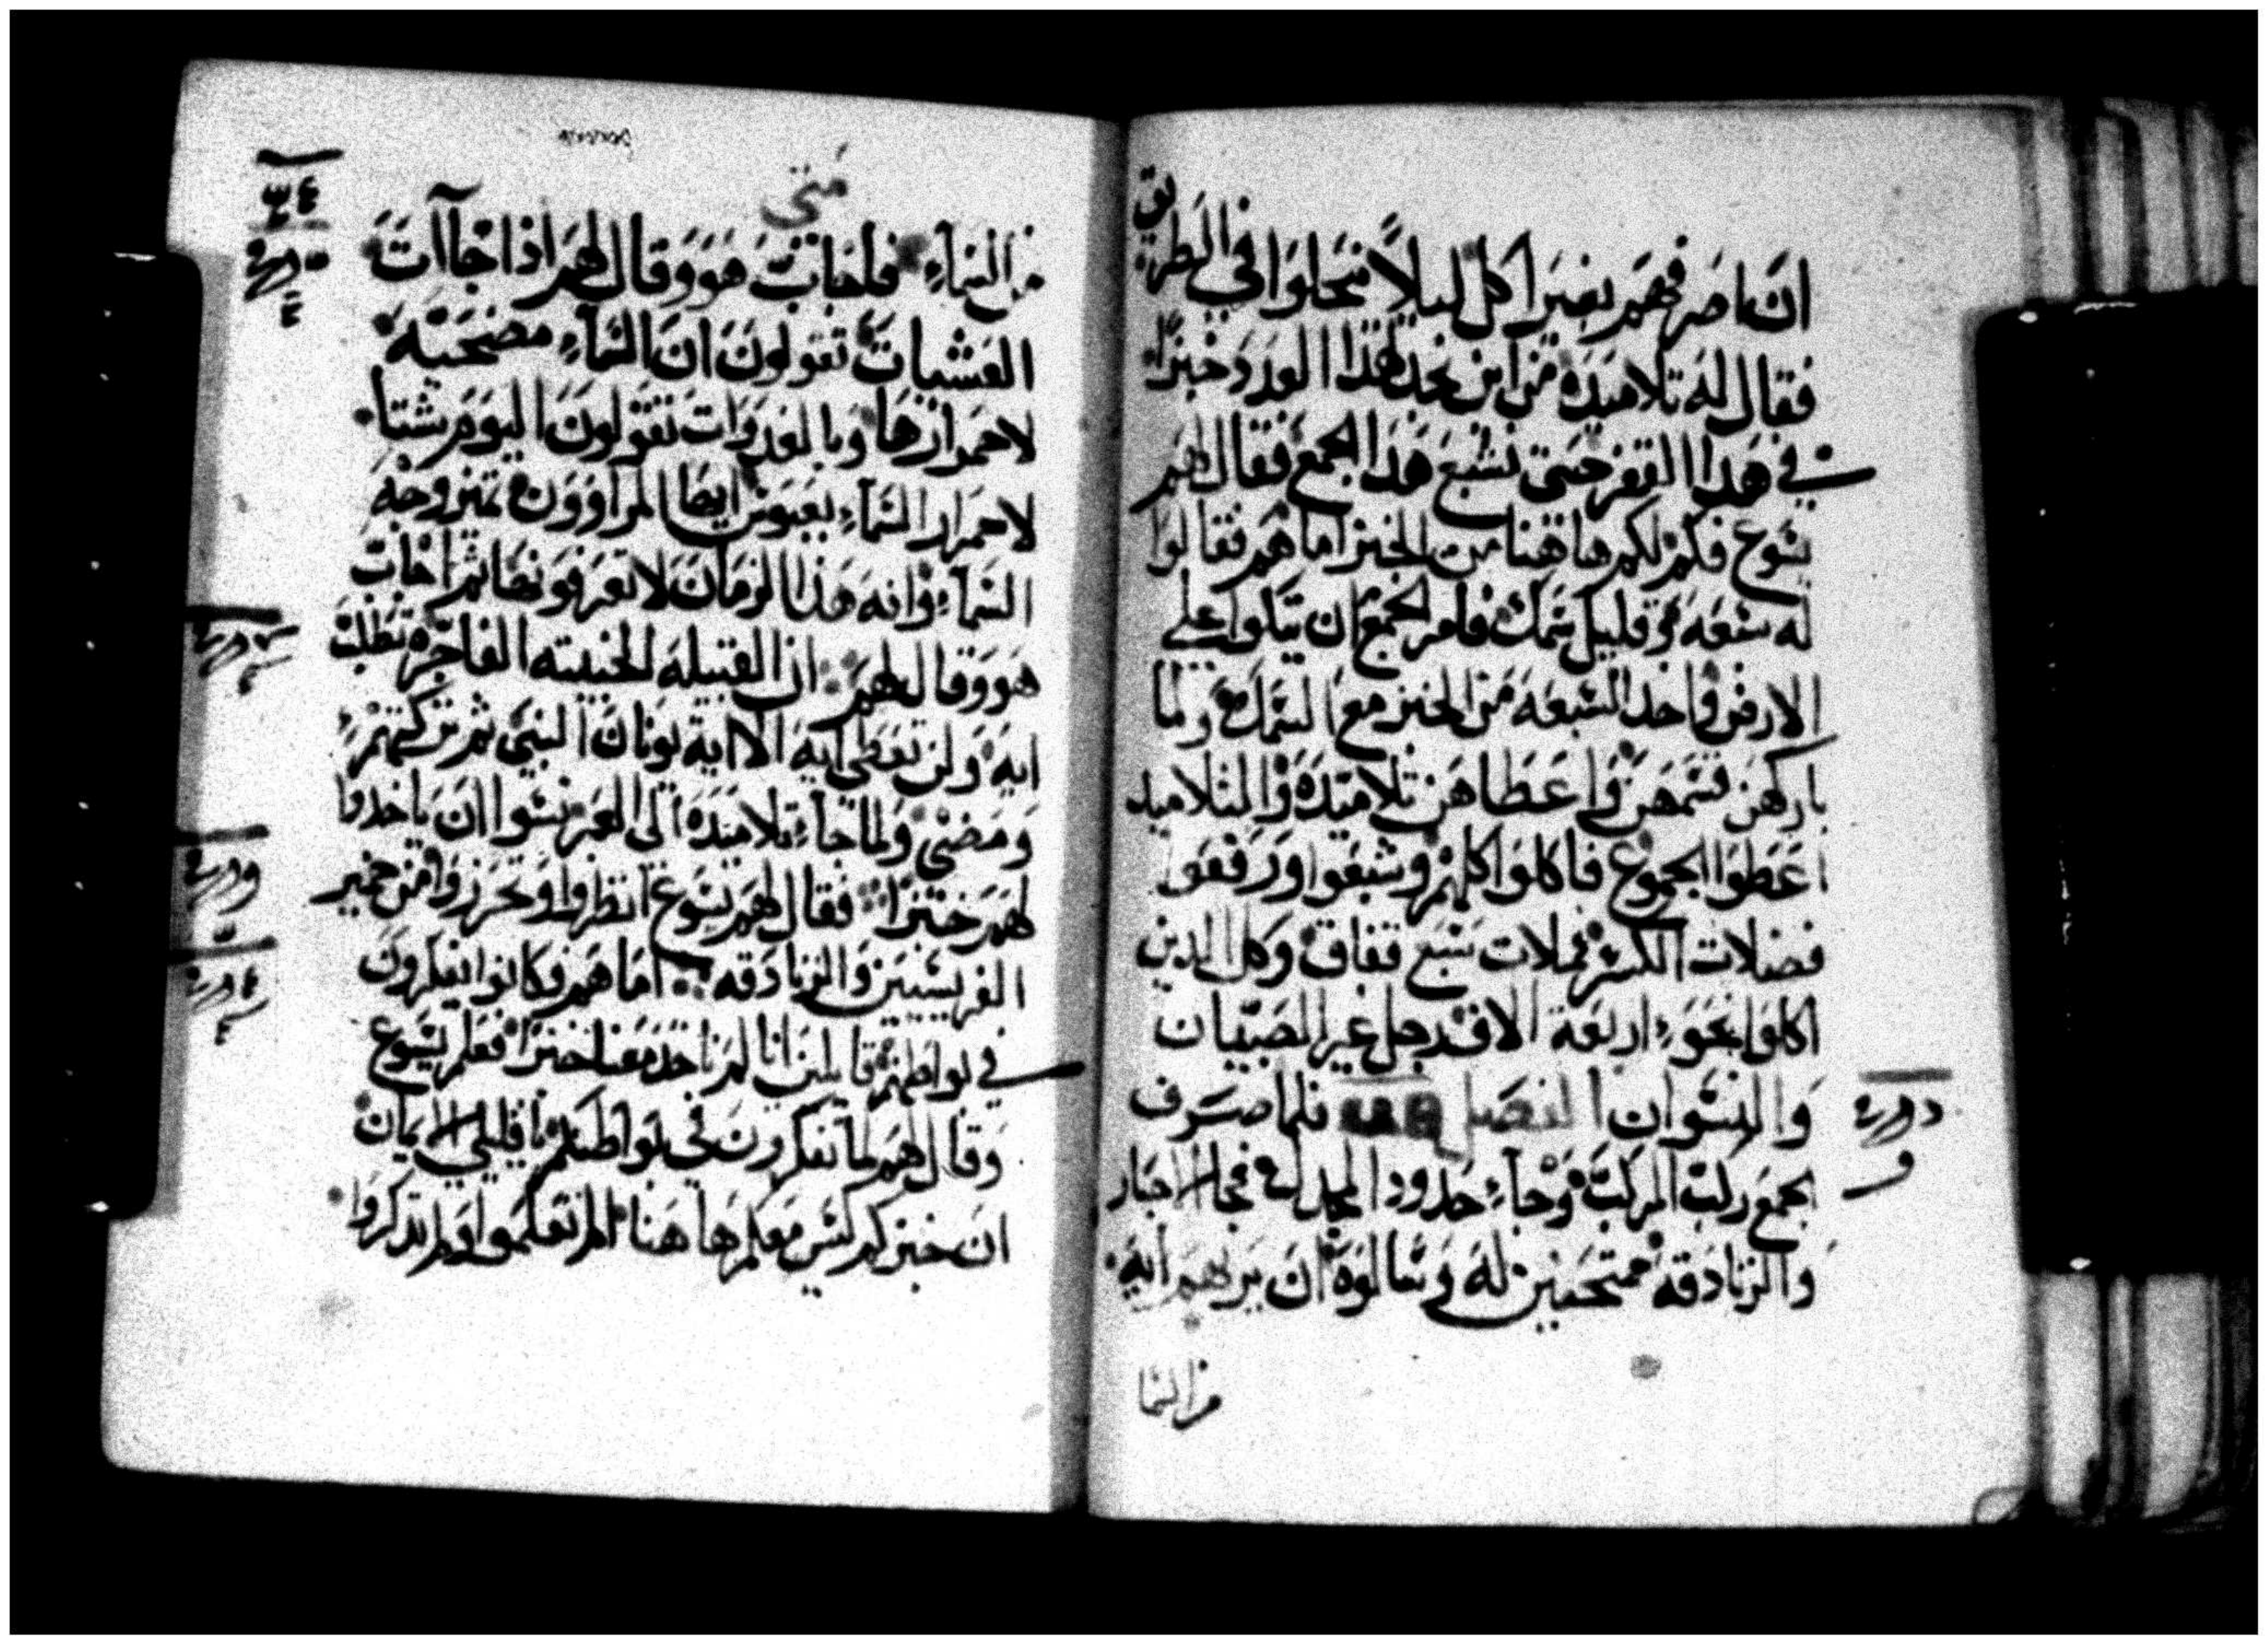 ان اصرفهم بغير اكل ليلا ينحلوا في الطريق
فقال له تلاميذه من اين نجد لهذا العدد خبزا
في هذا القفر حتى نشبع هذا الجمع فقال لهم
يسوع فكم لكم هاهنا من الخبز اما هم فقالوا
له سبعه وقليل سمك فامر الجمع ان يتكوا على
الارض واخد السبعه من الخبز مع السمك ولما
باركهن قسمهن واعطاهن تلاميده والتلاميد
اعطوا الجموع فاكلوا كلهم وشبعوا ورفعوا
فضلات الكسر مملات سبع قفاف وكل الدين
اكلوا نحو اربعة الاف رجل غير الصبيان
والنسوان الفصل فلما صرف
الجمع ركب المركب وجاء حدود المجدله فجا الاحبار
والزنادقه ممتحنين له وسالوه ان يريهم ايه
من السما
متى
من السماء فاجاب هو وقال لهم اذا جاات
العشيات تقولون ان السماء مضحيه
لاحمرارها وبالغدوات تقولون اليوم شتا
لاحمرار السماء بعبوس ايها المراوون تميز وجه
السماء وانه هذا الزمان لا تعرفونها ثم اجاب
هو وقال لهم ان القبيله الخبيثه الفاجره تطلب
ايه ولن تعطى ايه الا اية يونان النبي ثم تركهم
ومضى ولما جاء تلاميده الى العبر نسوا ان ياخدوا
لهم خبزا فقال لهم يسوع انظروا وتحرزوا من خمير
الفريسيين والزنادقه اما هم فكانوا يفكرون
في بواطنهم قايلين انا لم ناخد معنا خبزا فعلم يسوع
وقال لهم لما تفكرون في بواطنكم يا قليلي الايمان
ان خبزكم ليس معكم هاهنا الم تعلموا ولم تدكروا